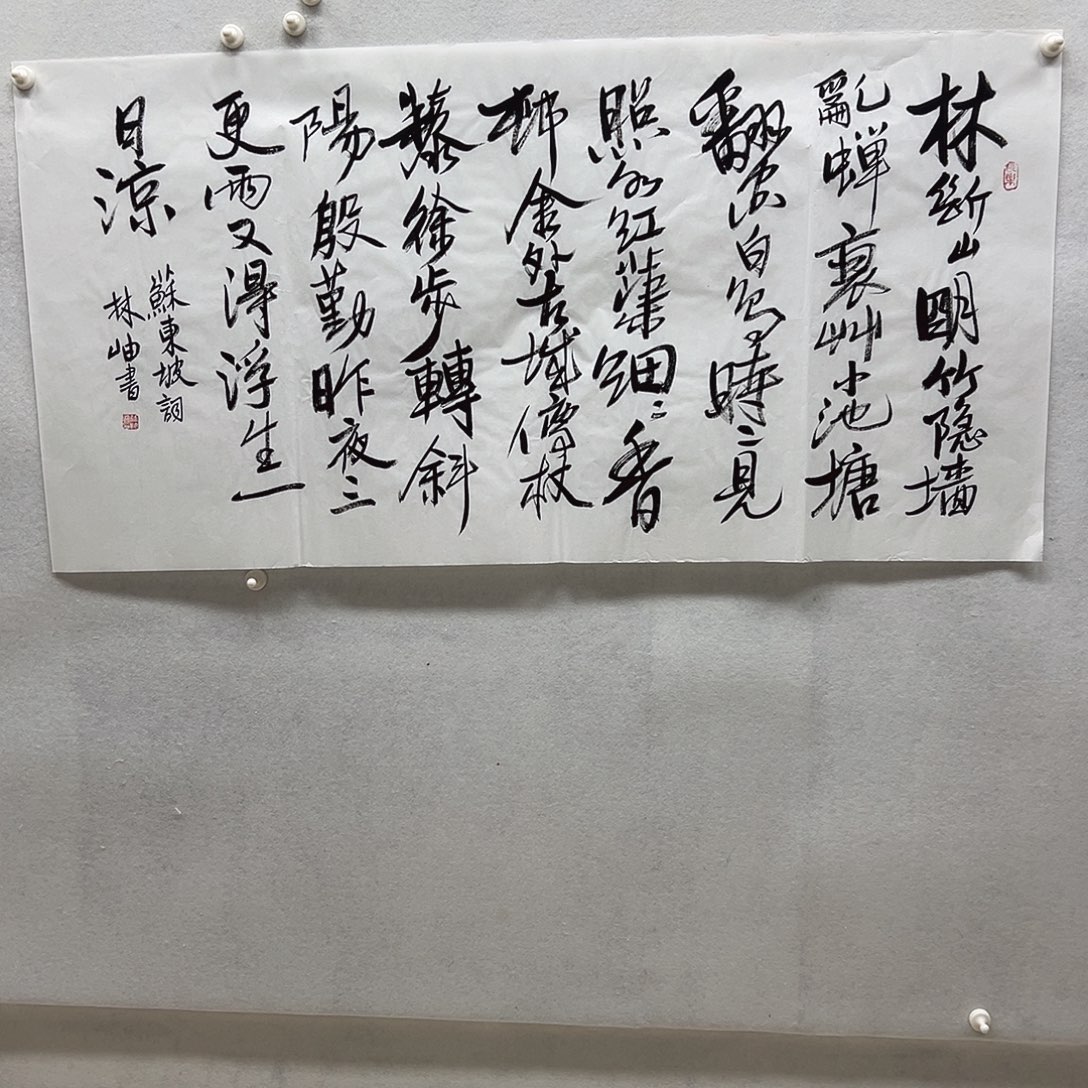 林斷山朙竹隐墙
亂蝉衰艸小池塘
翻空白鳥時々見
照水红蕖细々香
邨舍外古城傍杖
藜徐步轉斜
陽殷勤昨夜三
更雨又得浮生一
日涼
蘇東坡詞
林岫書